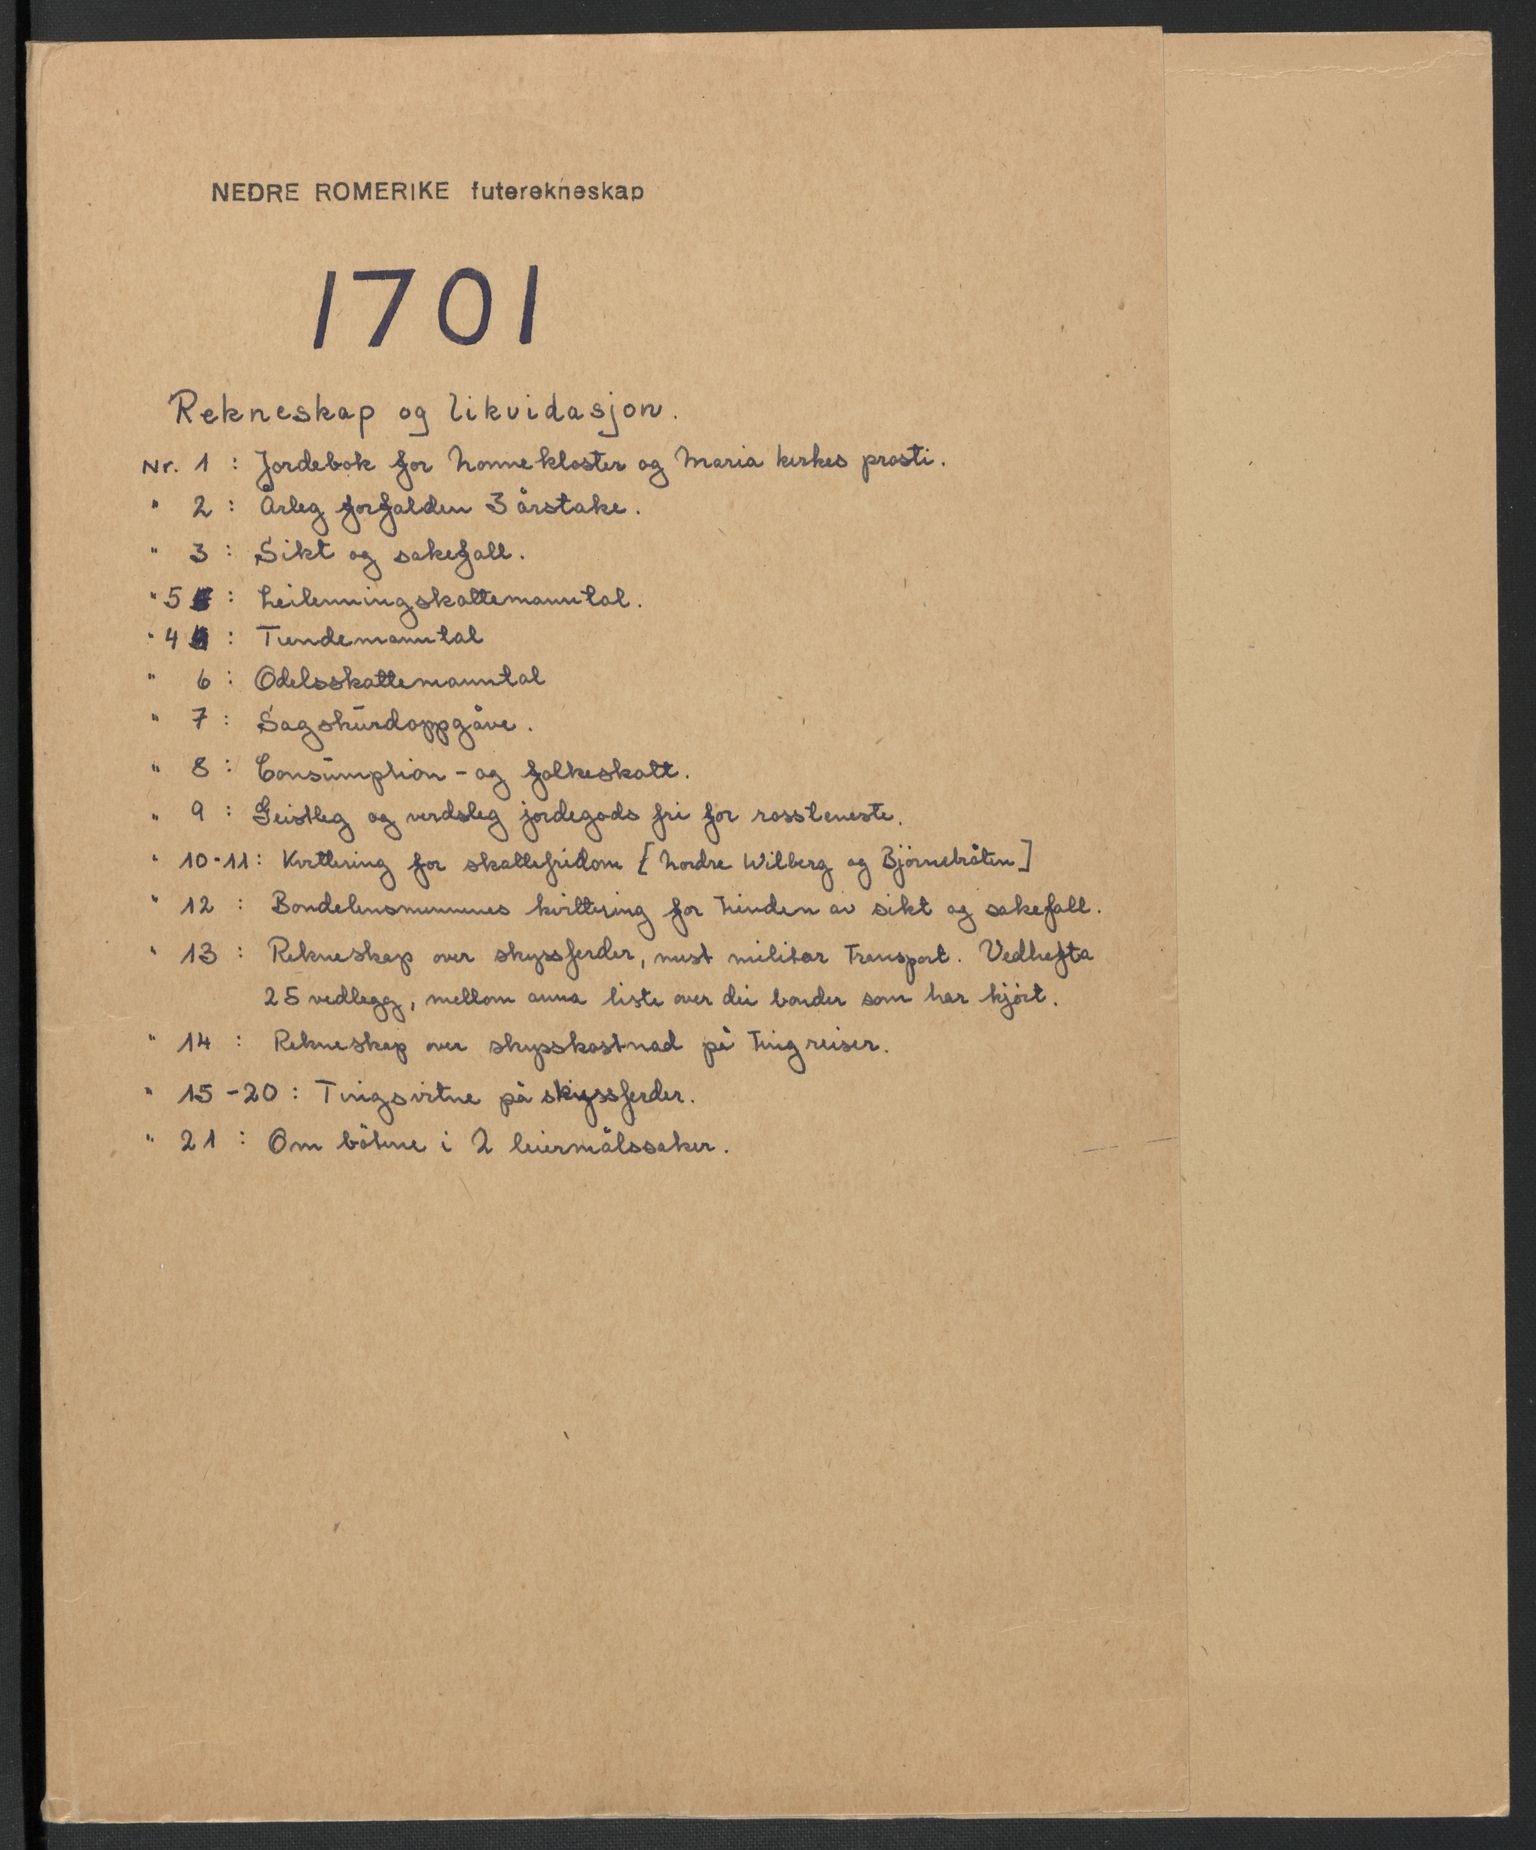 NEDRE ROMERIKE futerekneskap
1701
Rekneskap og likvidasjon.
Nr. 1 : Jordebok for Nonnekloster og Maria kirkes prosti.
" 2 : Årleg forfalden 3 årstake.
" 3 : Sikt og sakefall.
" 5 : Leilenningskattemanntal.
" 4 : Tiendemanntal
" 6 : Odelsskattemanntal
" 7 : Sagskurdoppgåve.
" 8 : Consumption - og folkeskatt.
" 9 : Geistleg og verdsleg jordegods fri for rossteneste.
" 10-11 : Kvittering for skattefridom [Nordre Wilberg og Björnebråten]
" 12 : Bondelensmennenes kvittering for tienden av sikt og sakefall.
" 13 : Rekneskap over skyssferder, mest militær transport. Vedhefta
25 vedlegg, mellom anna liste over dei bønder som har kjört.
" 14 : Rekneskap over skysskostnad på tingreiser.
" 15-20 : Tingsvitne på skyssferder.
" 21 : Om bötene i 2 leiermålssaker.